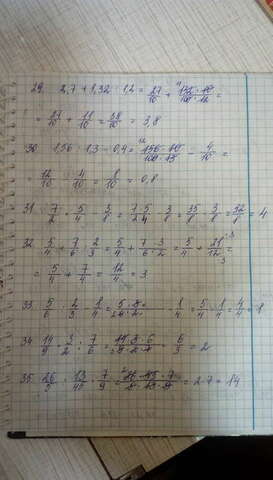 29. 2,7 + 1,32 : 1,2 = 27/10 + 132·10/100·12 =
= 27/10 + 11/10 = 38/10 = 3,8
30 1,56 : 1,3 - 0,4 = 156·10/100·13 - 4/10 =
12/10 - 4/10 = 8/10 = 0,8
31 7/2 : 5/4 - 3/8 = 7·5/2·4 - 3/8 = 35/8 - 3/8 = 32/8 = 4
32 5/4 + 7/6 : 2/3 = 5/4 + 7·3/6·2 = 5/4 + 21/12 =
= 5/4 + 7/4 = 12/4 = 3
33 5/6 · 2/3 - 1/4 = 1/4 = 5/4 - 1/4 = 4/4 = 1
34 14/9 : 3/2 : 7/6 = 6/3 = 2
35 26/5 : 13/45 · 7/9 = = 2·7 = 14